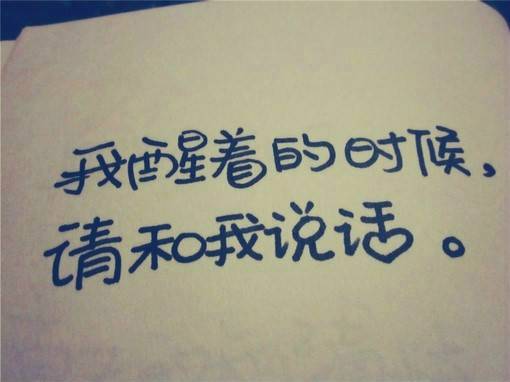 我醒着的时候,
请和我说话。